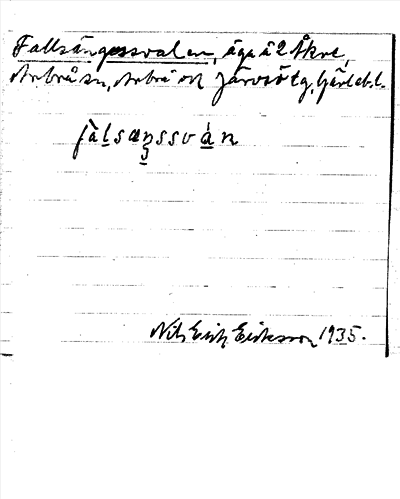 Fallsängssvalen, äga å 2 Åkre,
Arbrå sn, Arbrå och Järvsö tg, Gävleb. l.
fàlsæŋssván
Nils Erik Eriksson 1935.